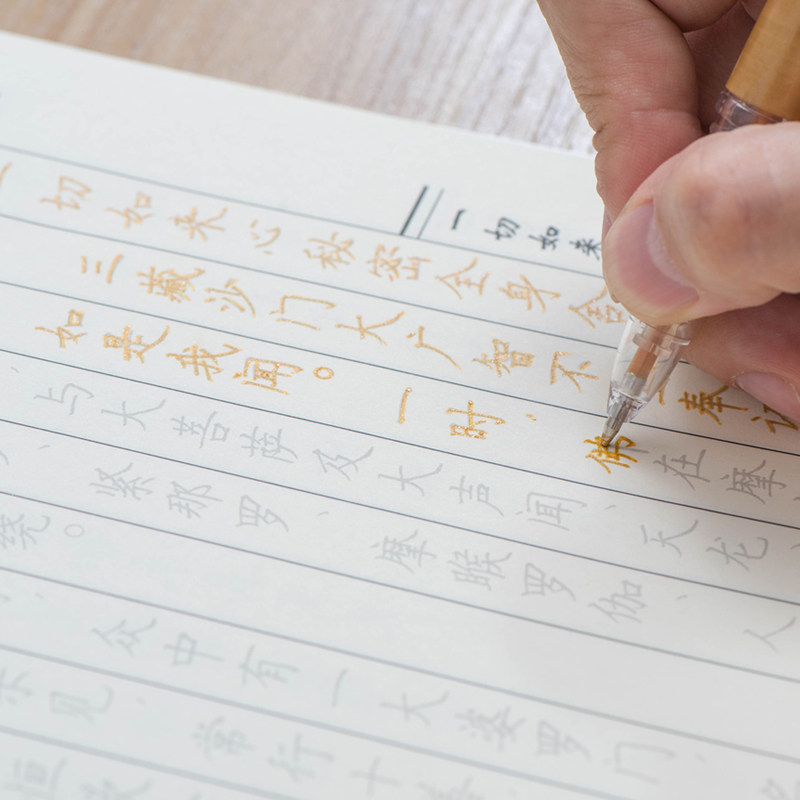 一切如来
一切如来心秘密全身舍
三藏沙门大广智不奉
如是我闻。一时，佛在摩
、与大菩萨及大声闻、天龙
、紧那罗、摩睺罗伽、人
绕。
众中有一大婆罗门
乐见，常行十善
恒欲